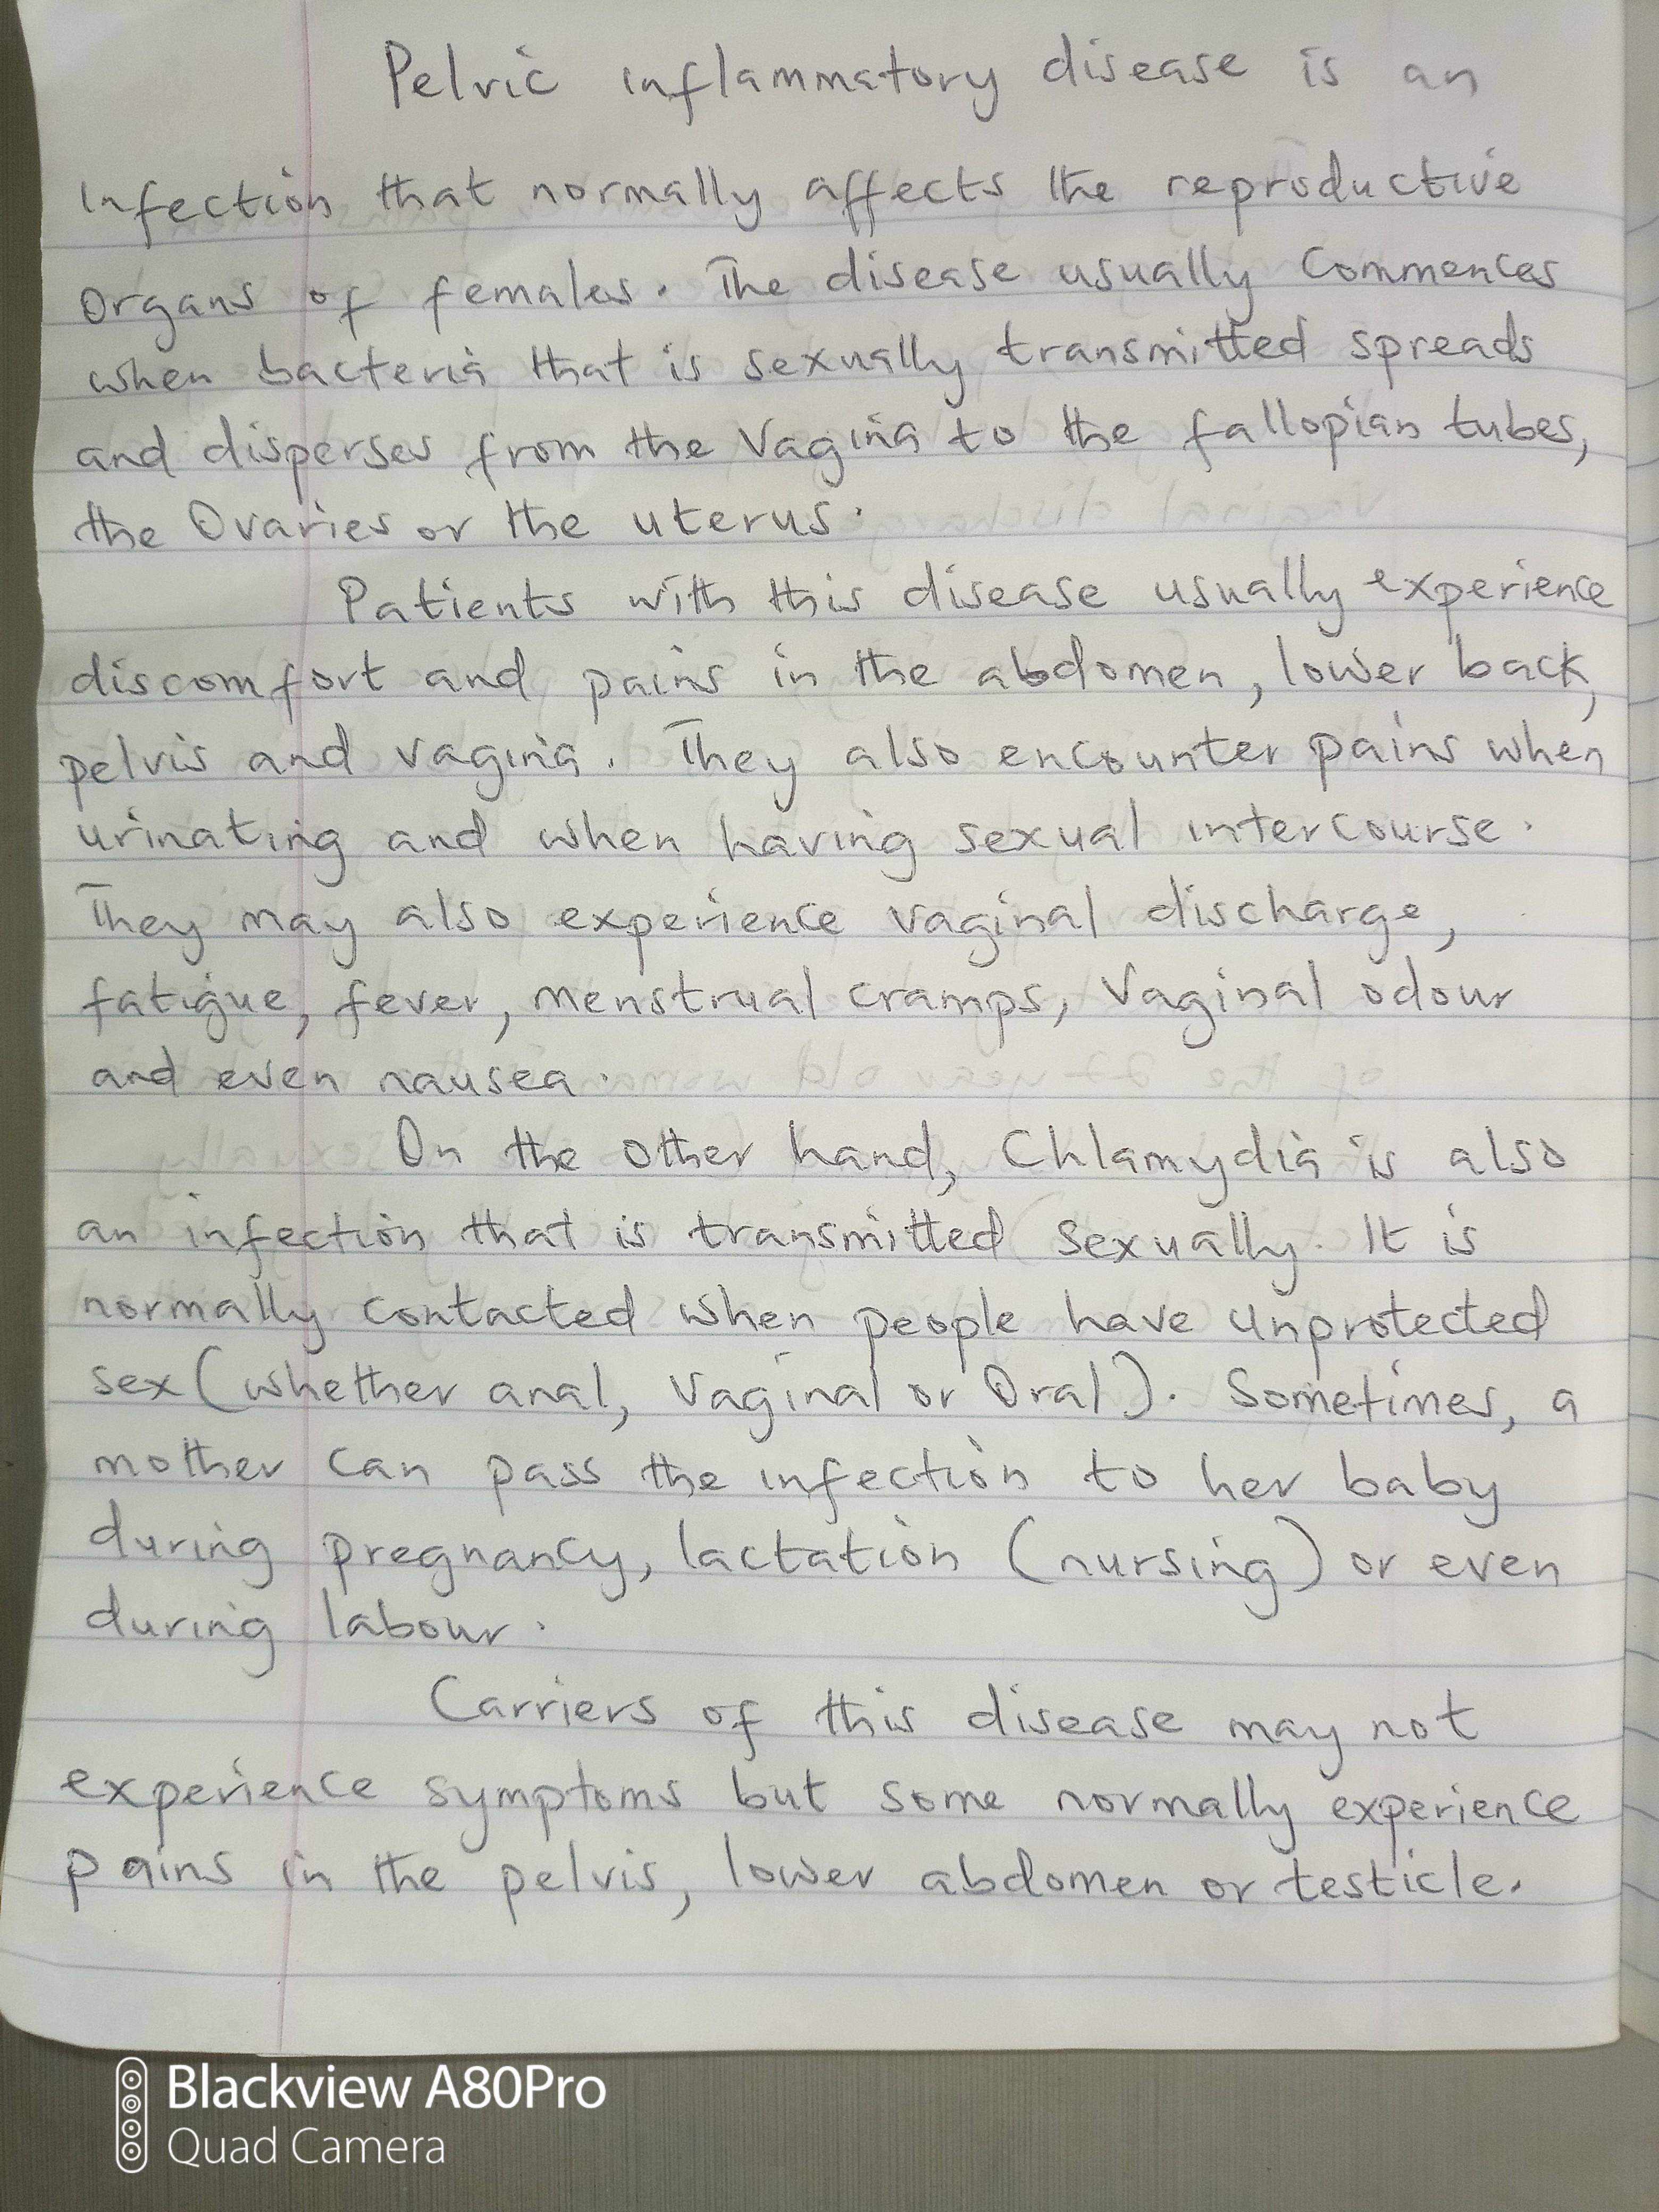 Pelvic inflammatory disease is an
Infection that normally affects the reproductive
Organs of females. The disease usually Commences
when bacteria that is sexually transmitted spreads
and disperses from the Vagina to the fallopian tubes,
the Ovaries or the uterus.
Patients with this disease usually experience
discomfort and pains in the abdomen, lower back,
pelvis and vagina. They also encounter pains when
urinating and when having sexual intercourse.
They may also experience vaginal discharge,
fatigue, fever, menstrual cramps, Vaginal odour
and even nausea.
On the other hand, Chlamydia is also
an infection that is transmitted sexually. It is
normally contacted when people have unprotected
sex (whether anal, Vaginal or Oral). Sometimes, a
mother can pass the infection to her baby
during pregnancy, lactation (nursing) or even
during labour.
Carriers of this disease may not
experience symptoms but some normally experience
pains in the pelvis, lower abdomen or testicle.
Blackview A80Pro
Quad Camera